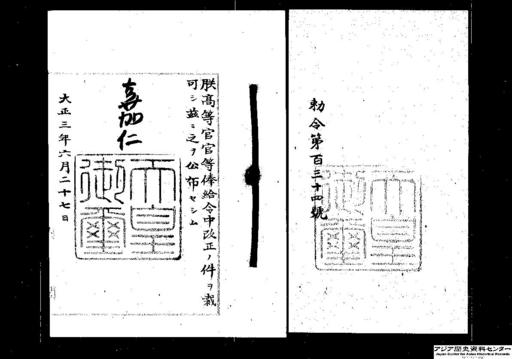 勅令第百三十四號
朕高等官官等俸給令中改正ノ件ヲ裁
可シ茲ニ之ヲ公布セシム
嘉仁
天皇
御璽
大正三年六月二十七日
アジア歴史資料センター
Japan Center for Asian Historical Records